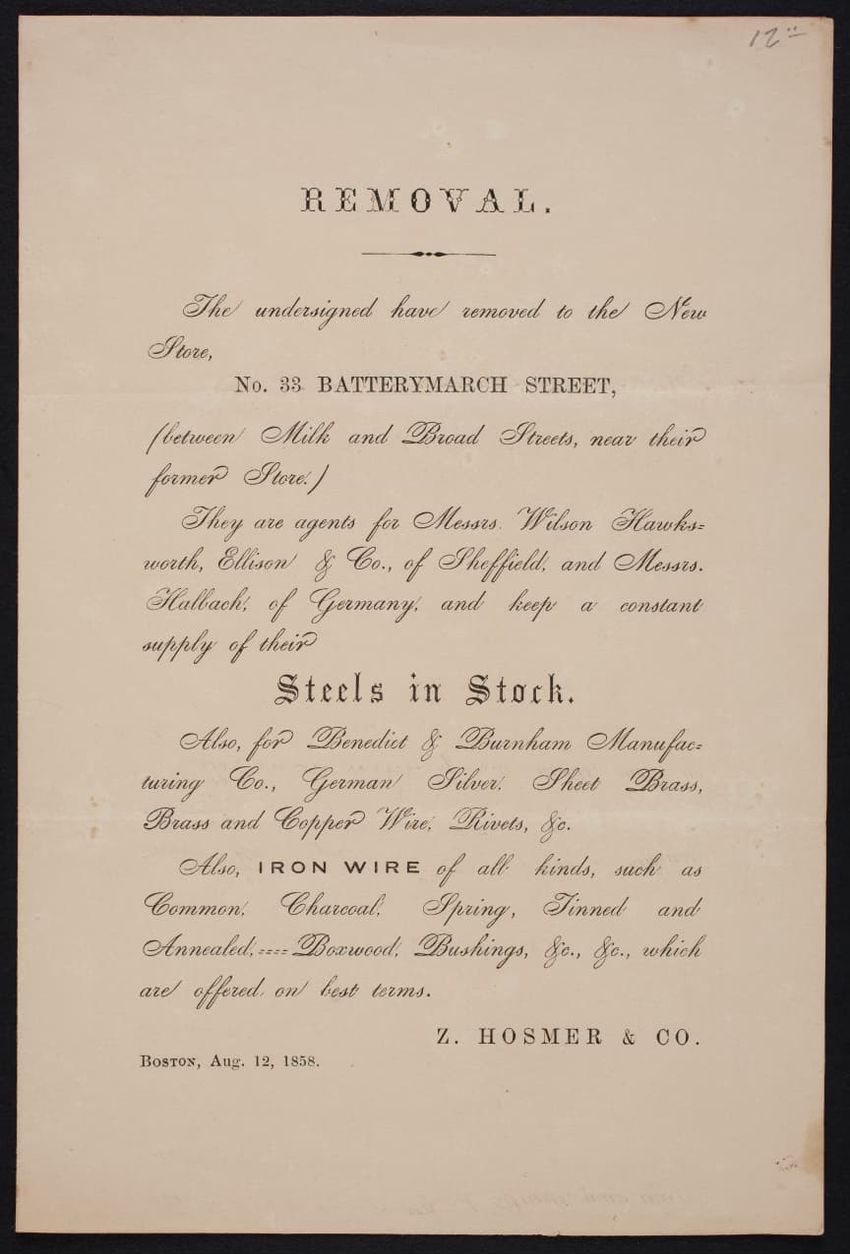 12
REMOVAL.
The undersigned have removed to the New
Store,
No. 33 BATTERYMARCH STREET,
(between Milk and Broad Streets, near their
former Store.)
They are agents for Messrs. Wilson Hawks=
worth, Ellison & Co., of Sheffield, and Messrs.
Halbach, of Germany, and keep a constant
supply of their
Steels in Stock.
Also, for Benedict & Burnham Manufac=
turing Co., German Silver, Sheet Brass,
Brass and Copper Wire, Rivets, &c.
Also, IRON WIRE of all kinds, such as
Common, Charcoal, Spring, Tinned and
Annealed,==== Boxwood, Bushings, &c., &c., which
are offered on best terms.
Z. HOSMER & CO.
BOSTON, Aug. 12, 1858.